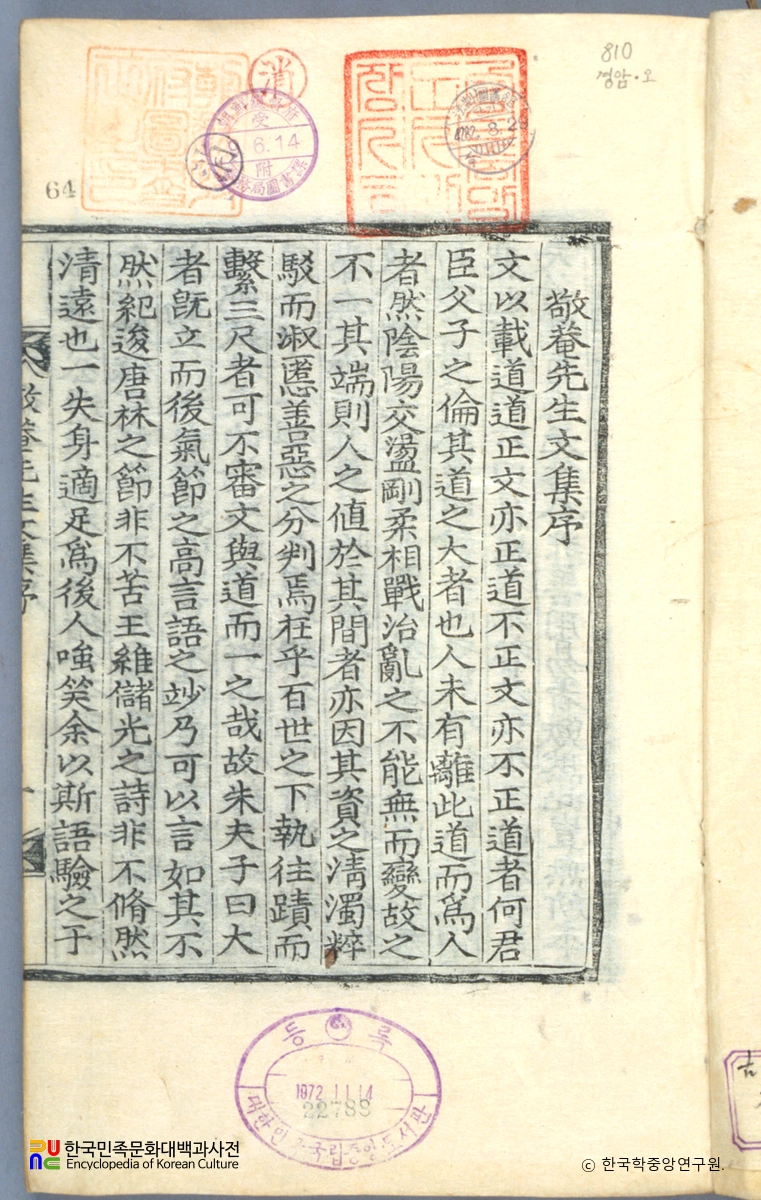 810
경암·오
64
消
受
6.14
附
圖書課
4282.8.29
敬菴先生文集序
文以載道道正文亦正道不正文亦不正道者何君
臣父子之倫其道之大者也人未有離此道而爲人
者然陰陽交盪剛柔相戰治亂之不能無而變故之
不一其端則人之値於其間者亦因其資之淸濁粹
駁而淑慝善惡之分判焉在乎百世之下執往蹟而
繫三尺者可不審文與道而一之哉故朱夫子曰大
者旣立而後氣節之高言語之妙乃可以言如其不
然紀逡唐林之節非不苦王維儲光之詩非不脩然
淸遠也一失身適足爲後人嗤笑余以斯語驗之于
敬菴先生文集序
一
등록
1972.11.14
22799
대한민국국립중앙도서관
한국민족문화대백과사전
Encyclopedia of Korean Culture
© 한국학중앙연구원.